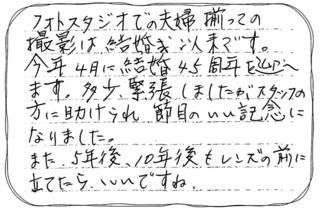 フォトスタジオでの夫婦揃っての
撮影は結婚式以来です。
今年4月に結婚45周年を迎え
ます。多少、緊張しましたがスタッフの
方に助けられ節目のいい記念に
なりました。
また5年後、10年後もレンズの前に
立てたら、いいですね。